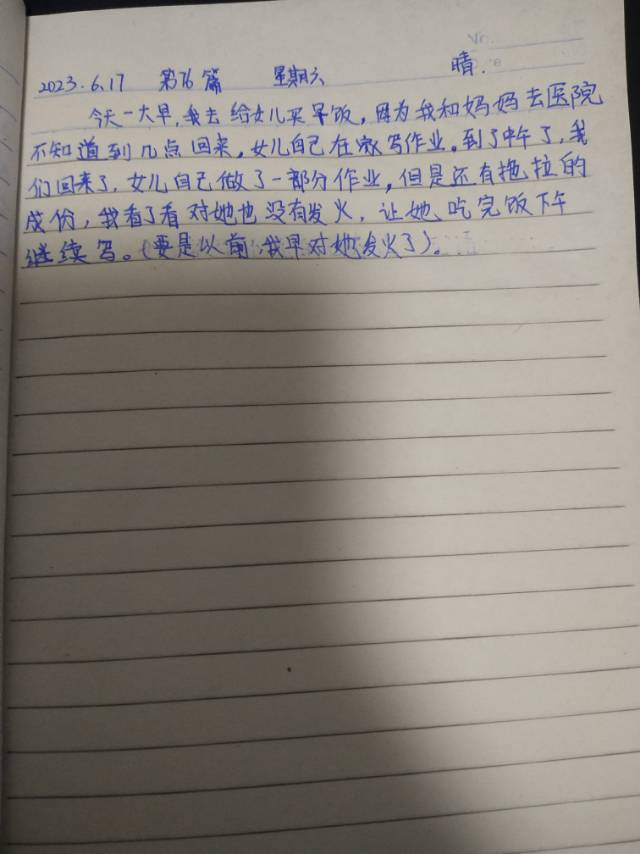 2023.6.17 第76篇 星期六 晴.
今天一大早,我去给女儿买早饭,因为我和妈妈去医院
不知道到几点回来,女儿自己在家写作业。到了中午了,我
们回来了,女儿自己做了一部分作业,但是还有拖拉的
成份,我看了看对她也没有发火,让她吃完饭下午
继续写。(要是以前,我早对她发火了)。